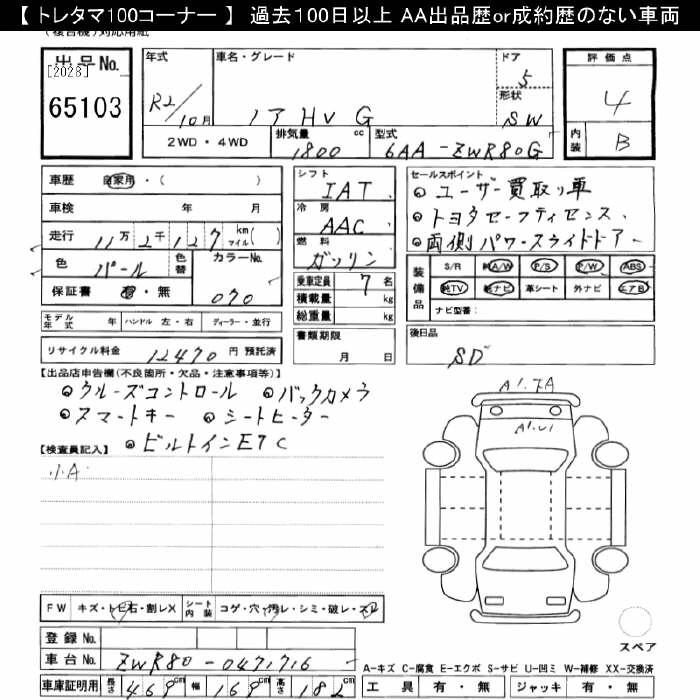 【 トレタマ100コーナー 】 過去100日以上 AA出品歴or成約歴のない車両
(複合機)対応用紙
出品No.
[2028]
65103
年式 車名・グレード ドア 評価点
R2/10月 ノア HV G 5 4
形状 SW
2WD・4WD 排気量 cc 1800 型式 6AA-ZWR80G 内装 B
車歴 自家用・( )
車検 年 月
走行 11万2千127 km マイル( )
色 パール 色替 カラーNo. 070
保証書 有・無
シフト IAT
冷房 AAC
燃料 ガソリン
乗車定員 7名
積載量 kg
総重量 kg
セールスポイント
◎ ユーザー買取り車
◎ トヨタセーフティセンス、
◎ 両側パワースライドドアー
装備品 S/R 純A/W P/S P/W ABS
純TV 純ナビ 革シート 外ナビ エアB
ナビ型番:
モデル年式 年 ハンドル 左・右 ディーラー・並行
リサイクル料金 12470 円 預託済
書類期限 月 日
後日品 SD
【出品店申告欄(不良箇所・欠品・注意事項等)】
◎ クルーズコントロール ◎ バックカメラ
◎ スマートキー ◎ シートヒーター
◎ ビルトインETC
【検査員記入】
小A
A1.
A1.U1
FW キズ・トビ石・割レX シート内装 コゲ・穴・汚レ・シミ・破レ・スレ
登録No.
車台No. ZWR80-0471716
車庫証明用 長さ 469cm 幅 169cm 高さ 182cm
スペア
A-キズ C-腐食 E-エクボ S-サビ U-凹ミ W-補修 XX-交換済
工具 有・無 ジャッキ 有・無